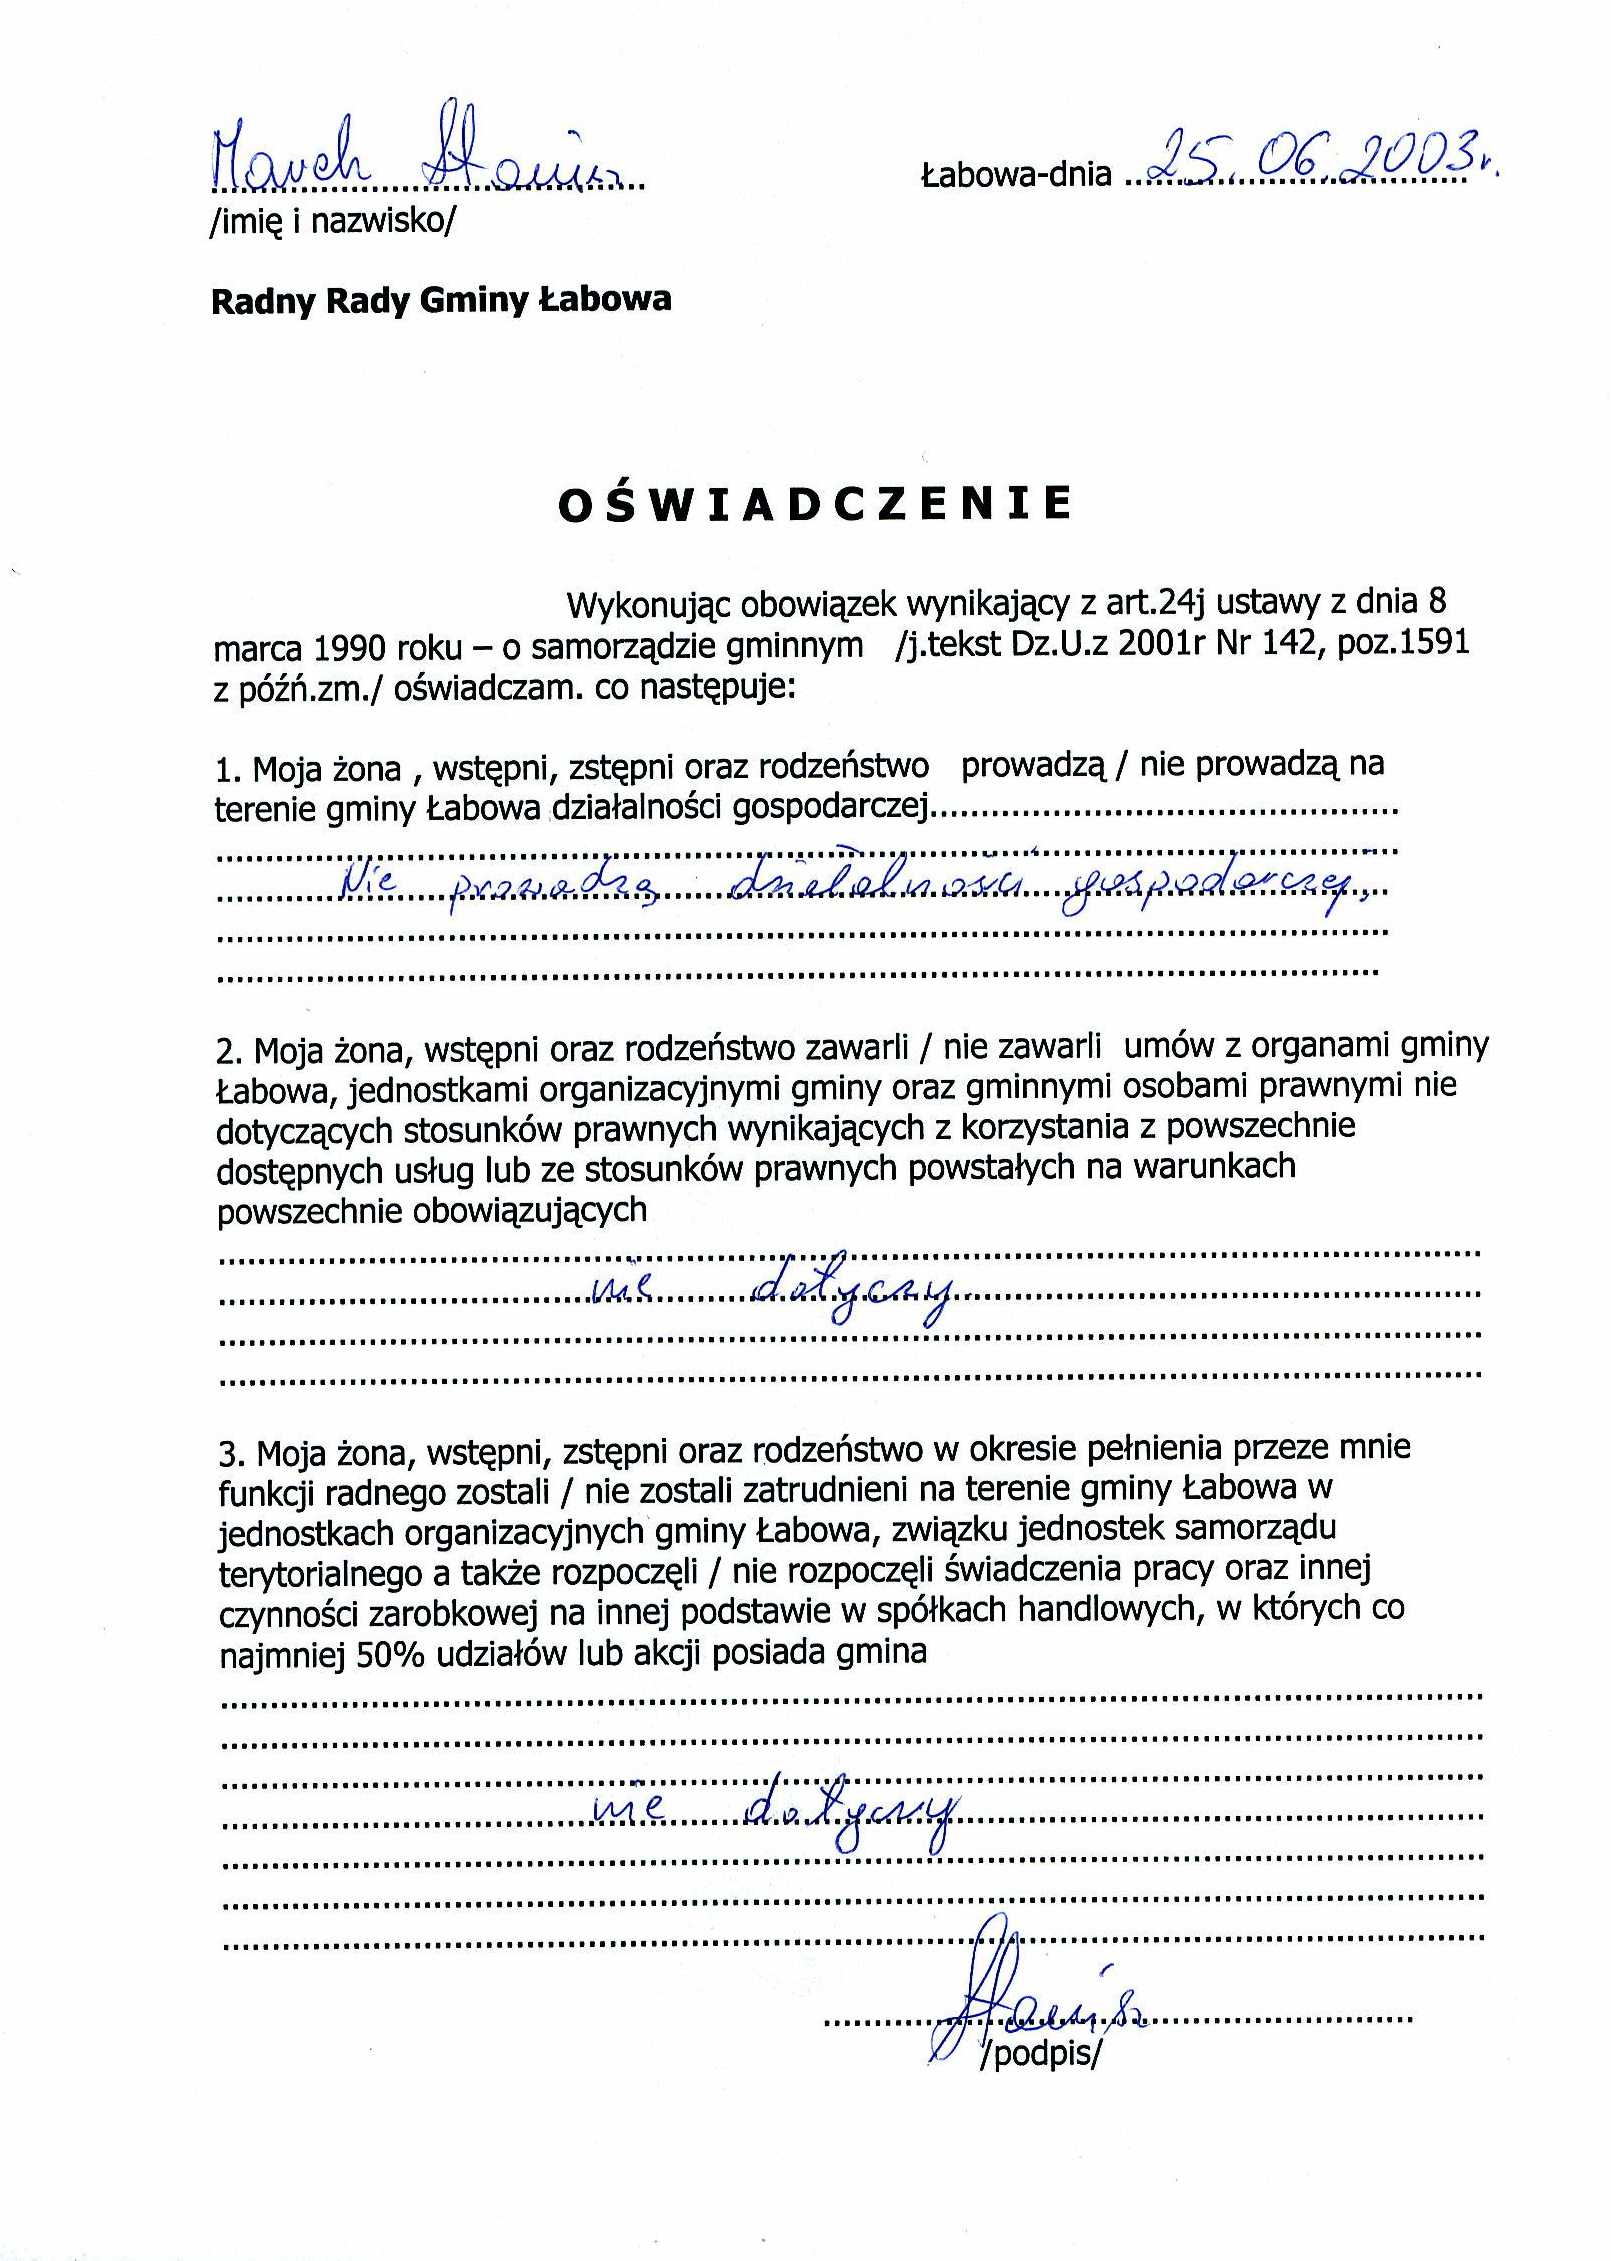 Marek Stanisz
Łabowa-dnia 25.06.2003r.
/imię i nazwisko/
Radny Rady Gminy Łabowa
OŚWIADCZENIE
Wykonując obowiązek wynikający z art.24j ustawy z dnia 8
marca 1990 roku – o samorządzie gminnym /j.tekst Dz.U.z 2001r Nr 142, poz.1591
z późń.zm./ oświadczam. co następuje:
1. Moja żona , wstępni, zstępni oraz rodzeństwo prowadzą / nie prowadzą na
terenie gminy Łabowa działalności gospodarczej
Nie prowadzą działalności gospodarczej,
2. Moja żona, wstępni oraz rodzeństwo zawarli / nie zawarli umów z organami gminy
Łabowa, jednostkami organizacyjnymi gminy oraz gminnymi osobami prawnymi nie
dotyczących stosunków prawnych wynikających z korzystania z powszechnie
dostępnych usług lub ze stosunków prawnych powstałych na warunkach
powszechnie obowiązujących
nie dotyczy
3. Moja żona, wstępni, zstępni oraz rodzeństwo w okresie pełnienia przeze mnie
funkcji radnego zostali / nie zostali zatrudnieni na terenie gminy Łabowa w
jednostkach organizacyjnych gminy Łabowa, związku jednostek samorządu
terytorialnego a także rozpoczęli / nie rozpoczęli świadczenia pracy oraz innej
czynności zarobkowej na innej podstawie w spółkach handlowych, w których co
najmniej 50% udziałów lub akcji posiada gmina
nie dotyczy
Stanisz
/podpis/